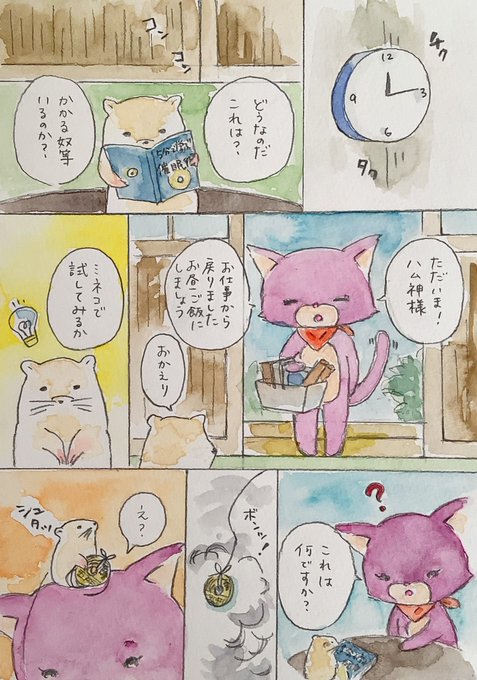 チク
タク
12
3
6
9
コン
コン
どうなのだ
これは?
かかる奴等
いるのか?
催眠
ただいま!
ハム神様
お仕事から
戻りました
お昼ご飯に
しましょう
おかえり
ミネコで
試してみるか
?
これは
何ですか?
ボンッ!
え?
シュタッ